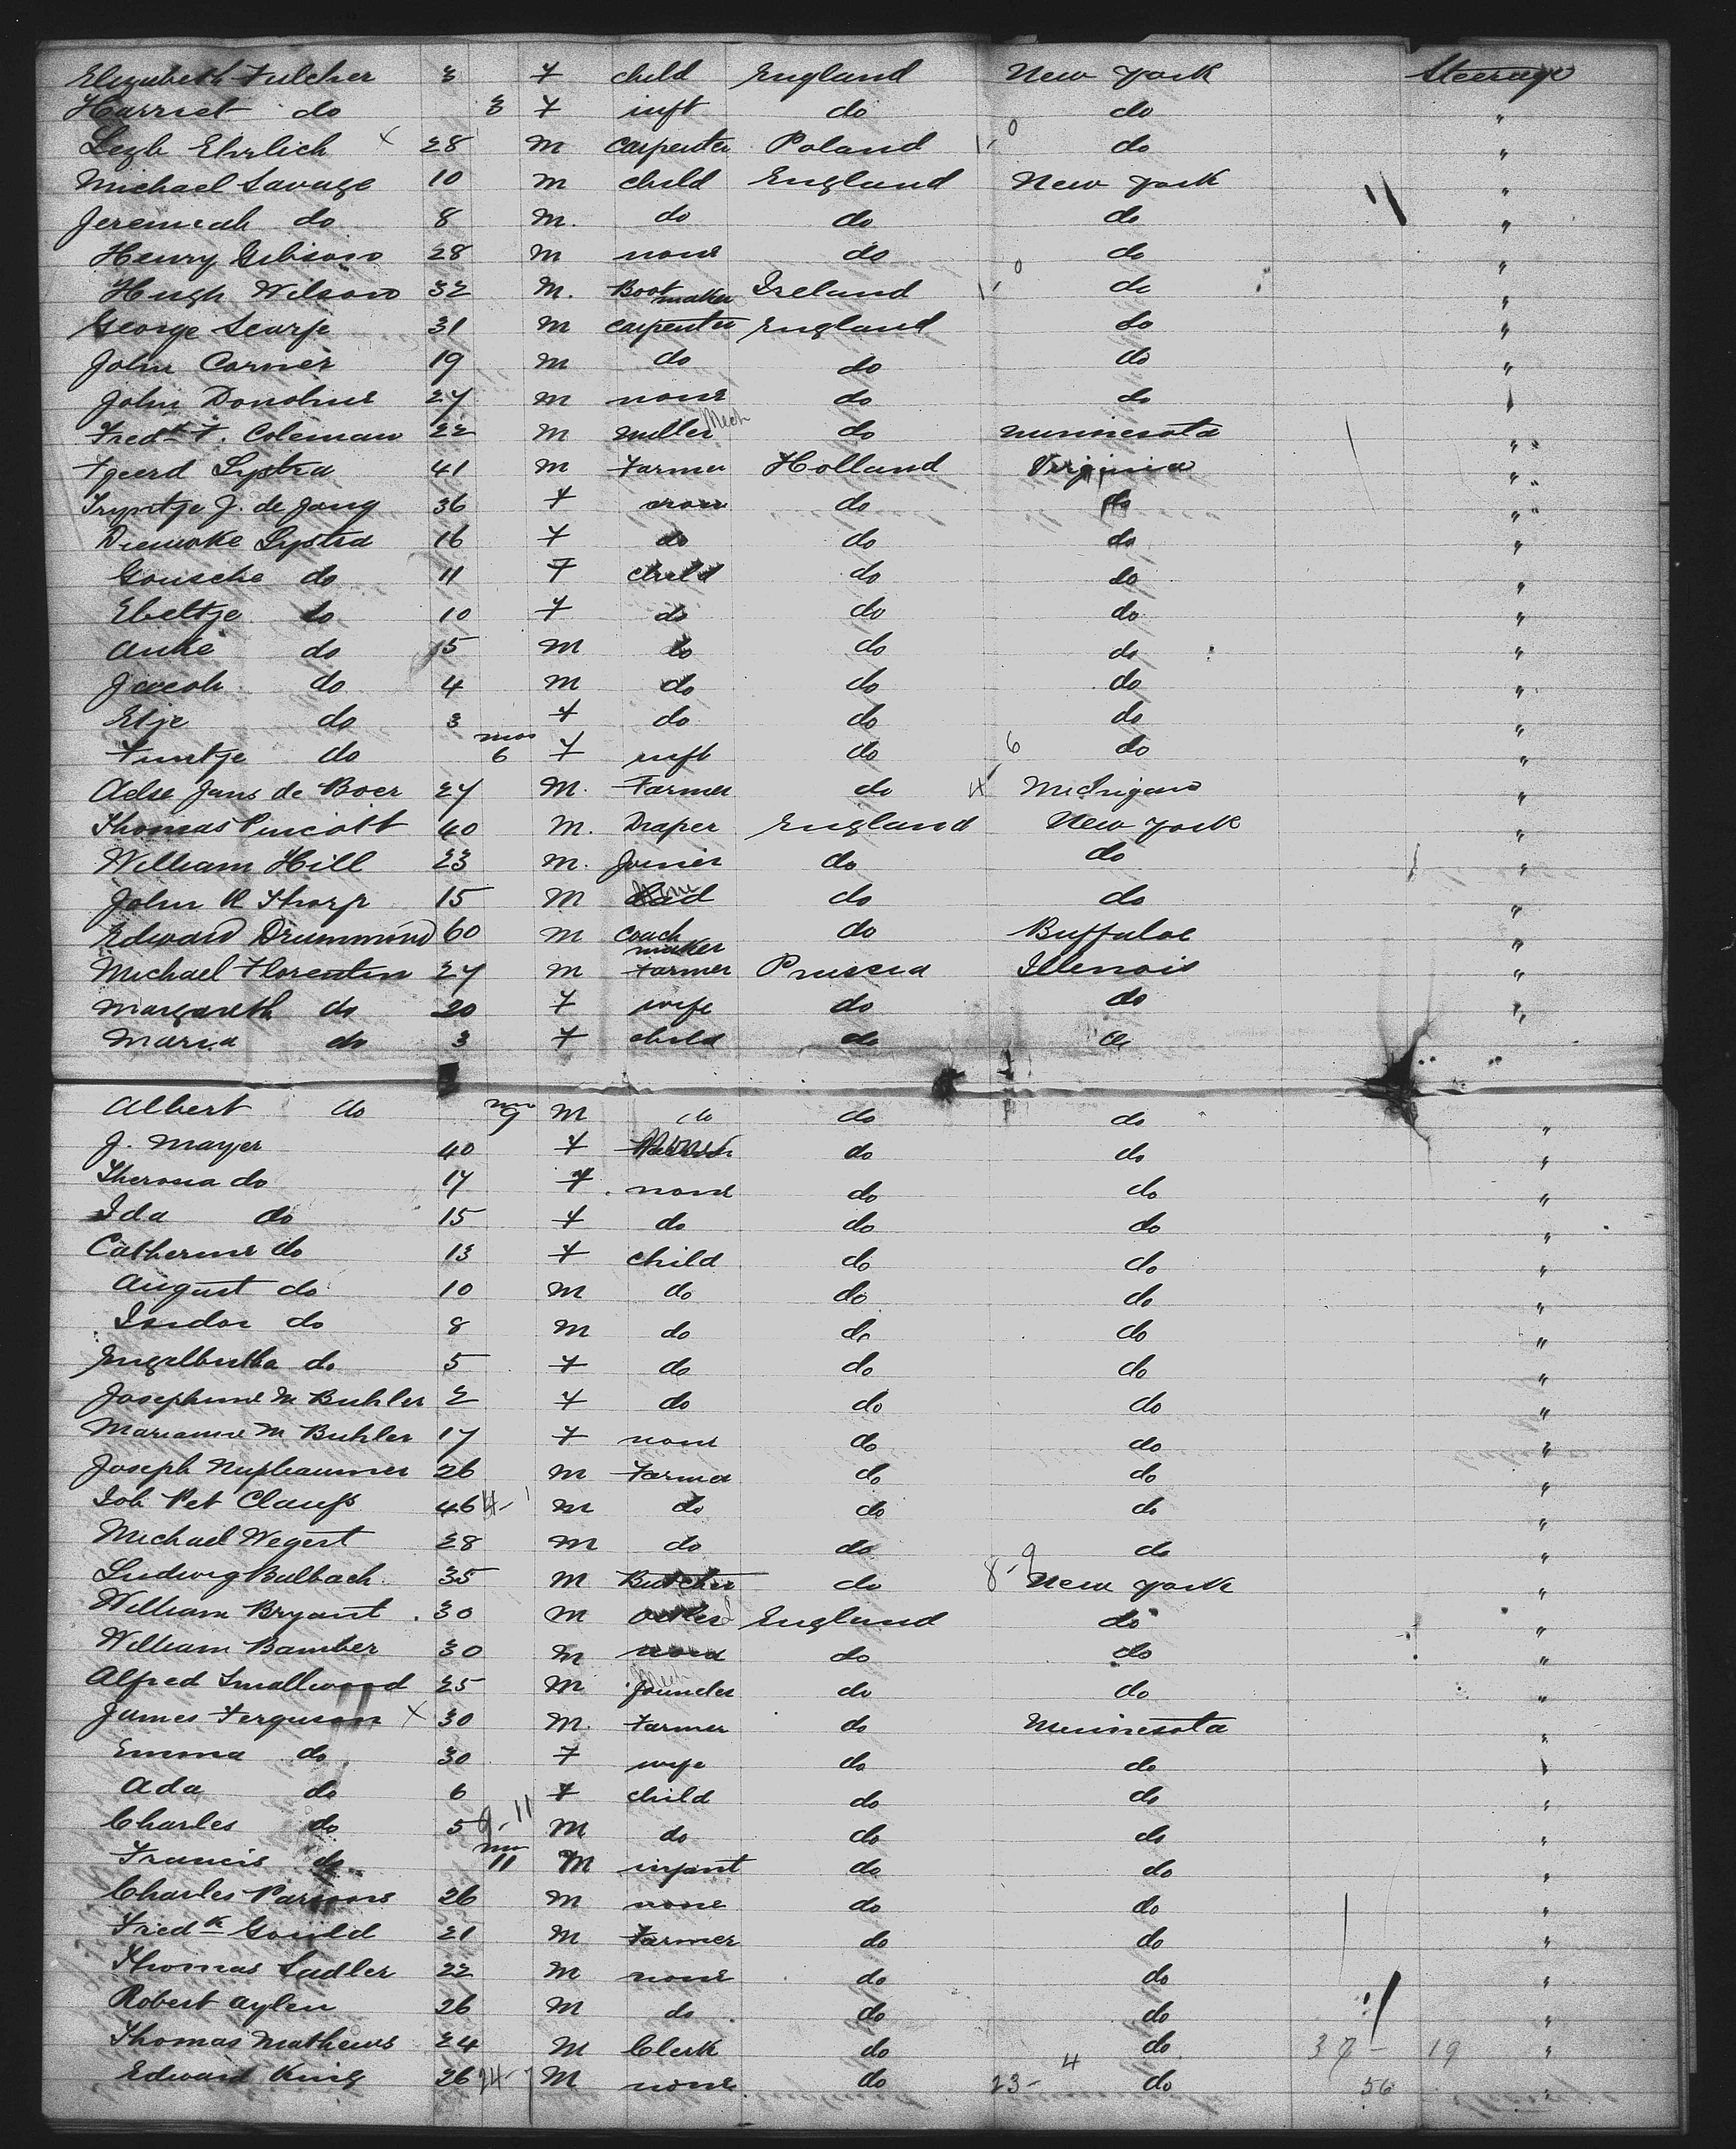 Elizabeth Fulcher 3 F child England New York Steerage
Harriet do 3 F inft do do "
Lezb Ehrlich x 28 M carpenter Poland do "
Michael Savage 10 M child England New York "
Jeremiah do 8 M. do do do "
Henry Gibson 28 M none do do "
Hugh Wilson 32 M. Boot maker Ireland do "
George Scarfe 31 M carpenter England do "
John Corner 19 M do do do "
John Donohue 27 M none do do "
Fredk F. Coleman 22 M miller Mech do Minnesota "
Tjeerd Lystra 41 M Farmer Holland Virginia "
Tryntje J. de Jong 36 F do do "
Lystra 16 F do do do "
Gousche do 11 F child do do "
Ebeltje do 10 F do do do "
Anke do 5 M do do do "
Jacob do 4 M do do do "
Etje do 3 F do do do "
do mos 6 F inft do 6 do "
Jans de Boer 27 M. Farmer do 4 Michigan "
Thomas Pincott 40 M. Draper England New York "
William Hill 23 M. Joiner do do "
John R Thorp 15 M do do "
Edward Drummond 60 M coach maker do Buffaloe "
Michael Florentin 27 M Farmer Prussia Illinois "
Margareth do 20 F wife do do "
Maria do 3 F child do do
Albert do 9 M do do do "
J. Mayer 40 F do do "
do 17 F. none do do "
Ida do 15 F do do do "
Catherine do 13 F child do do "
August do 10 M do do do "
Isidor do 8 M do do do "
Engelbertha do 5 F do do do "
Josephine M Buhler 2 F do do do "
Marianne M Buhler 17 F none do do "
Joseph 26 M Farmer do do "
Joh Pet Clauß 46 4- 1 M do do do "
Michael Wegert 28 M do do do "
Ludwig Bulbach 35 M Butcher do 8-9 New York "
William Bryant 30 M ostler England do "
William Bamber 30 M none do do "
Alfred Smallwood 25 M do do "
James Ferguson x 30 M. Farmer do Minnesota "
Emma do 30 F wife do do "
Ada do 6 F child do do "
Charles do 5 9-11 M do do do "
Francis do 11 M infant do do "
Charles Parsons 26 M none do do "
Fredk Gould 21 M Farmer do do "
Thomas Sadler 22 M none do do "
Robert Aylen 26 M do do do "
Thomas Mathews 24 M Clerk do do 37- 19 "
Edward King 26 24-7 M none do 23-4 do 56 "